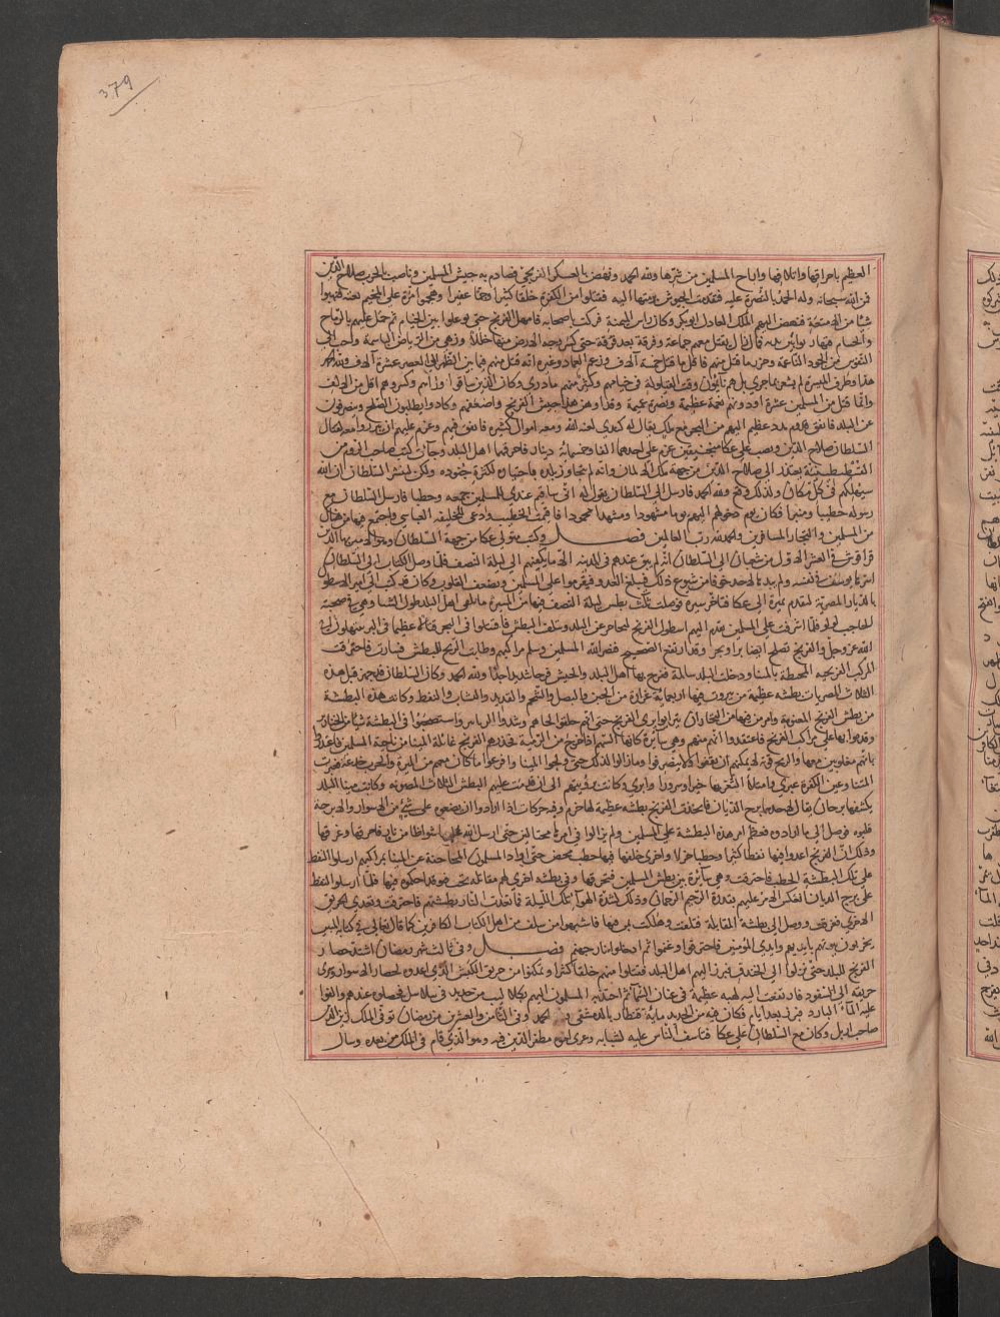 379
العظيم باحراقها واتلافها واباح المسلمين من شرها ولله الحمد ونهض بالعسكر الفرنجى فصادم به جيش المسلمين وناصب الحرب صلاح الدين
من الله سبحانه وله الحمد بالنصرة عليه فتقدمت الجيوش بمنتها اليه فقتلوا من الكفرة خلقا كثيرا وجما غفيرا وهجموا مرة على المخيم بغتة فنهبوا
شيا من الامتعة فنهض اليهم الملك العادل ابو بكر وكان راس الميمنة فركب باصحابه فامهل الفرنج حتى توغلوا بين الخيام ثم حمل عليهم بالرماح
والحسام فهربوا بين يديه فما زال يقتل منهم جماعة وفرقة بعد فرقة حتى كسى وجه الارض منها حللا وزهى من الرياض الباسمة واحب الى
النفوس من الخدود الناعمة وحزر ما قتل منهم فاقل ما قيل خمسة آلاف وزعم العماد وغيره انه قتل منهم فيما بين الظهر الى العصر عشرة آلاف ولله الحمد
هذا وطرف الميسرة لم يشعر بما جرى بل هم نائمون وقت القيلولة فى خيامهم وكثير منهم ما درى وكان الذين ساقوا وراهم وكسروهم اقل من الالف
وانما قتل من المسلمين عشرة او دونهم نعمة عظيمة ونصرة عميمة وقد اوهن هذا جيش الفرنج واضعفهم وكادوا يطلبون الصلح وينصرفون
عن البلد فاتفق قدوم مدد عظيم اليهم من البحر مع ملك يقال له كندى لعنه الله ومعه اموال كثيرة فانفق فيهم وعزم عليهم ان يبرزوا معه لقتال
السلطان صلاح الدين ونصب على عكا منجنيقين غرم على احدهما الفا وخمسمائة دينار فاحرقها اهل البلد وجآت كتب صاحب الروم من
القسطنطينية يعتذر الى صلاح الدين من جهة ملك الالمان وانه لم يتجاوز بلده باختياره لكثرة جنوده ولكن ليبشر السلطان ان الله
سيهلكهم فى كل مكان وكذلك وقع ولله الحمد فارسل الى السلطان يقول له انى ساقيم عندى للمسلمين جمعه وخطبا فارسل السلطان مع
رسوله خطيبا ومنبرا فكان يوم دخولهم اليهم يوما مشهودا ومشهدا محمودا فاقيمت الخطبة ودعى للخليفه العباسى واجتمع فيها من هناك
من المسلمين والتجار المسافرين والحمد لله رب العالمين فصــل وكتب متولى عكا من جهة السلطان وهو الامير بهآ الدين
قراقوش فى العشر الاول من شعبان الى السلطان انه لم يبق عندهم فى المدينه الا ما يكفيهم الى ليلة النصف فلما وصل الكتاب الى السلطان
اسرها يوسف فى نفسه ولم يبدها لاحد خوفا من شيوع ذلك فيبلغ العدو فيقووا على المسلمين وتضعف القلوب وكان قد كتب الى امير الاسطول
بالديار المصرية ليقدم بميرة الى عكا فتاخر سيره ثم وصلت ثلث بطس ليلة النصف فيها من الميرة ما يكفى اهل البلد طول الشتا وهى فى صحبة
الحاجب لولو فلما اشرفت على المسلمين نهض اليهم اسطول الفرنج ليحاجز عن البلد ويتلف البطس فاقتتلوا فى البحر قتالا عظيما وفى البر يبتهلون الى
الله عز وجل والفرنج تصيح ايضا برا وبحرا وقد ارتفع الضجيج فنصر الله المسلمين وسلم مراكبهم وطابت الريح للبطش فسارت فاحرقت
المراكب الفرنجيه المحيطة بالمينا ودخلت البلد سالمة ففرح بها اهل البلد والجيش فرحا شديدا جدا ولله الحمد وكان السلطان قد جهز قبل هذه
الثلاث المصريات بطشه عظيمة من بيروت فيها اربعمائة غرارة من الجبن والبصل والشحم والقديد والنشاب والنفط وكانت هذه البطشة
من بطش الفرنج المغنومة وامر من فيها من التجار ان يتزيوا بزى الفرنج حتى انهم حلقوا لحاهم وشدوا الزنانير واستصحبوا فى البطشة شيا من الخنازير
وقدموا بها على مراكب الفرنج فاعتقدوا انهم منهم وهى سايرة كانها السهم اذا خرج من الرمية فحذرهم الفرنج غائلة المينا من ناحية المسلمين فاعتذروا
بانهم مغلوبين معها والريح قوية لا يمكنهم ان يقفوا ولا ينصرفوا وما زالوا كذلك حتى ولجوا المينا وافرغوا ما كان معهم من الميرة والحرب خدعة فعبرت
المينا وعين الكفرة عبرى وامتلا الثغر بها خيرا وسرورا
يكشفها برجان يقال لاحدهما برج الذبان فاتخذت الفرنج بطشه عظيمة لها خرطوم وفيه حركات اذا ارادوا ان يضعوه على شئ من الاسوار والابرجة
قلبوه فوصل الى ما ارادوه فعظم امر هذه البطشة على المسلمين ولم يزالوا فى امرها محتالين حتى ارسل الله عليها شواظا من نار فاحرقها وغرقها
وذلك ان الفرنج اعدوا فيها نفطا كثيرا وحطبا جزلا واخرى خلفها فيها حطب محض حتى اذا اراد المسلمون المحاجفة عن المينا بمراكبهم ارسلوا النفط
على تلك البطشة الحطب فاحترقت وهى سائرة بين بطش المسلمين فتحرقها وفى بطشه اخرى لهم مقاتلة تحت قبو قد احكموه فيها فلما ارسلوا النفط
على برج الذبان انعكس الامر عليهم بقدرة الرحيم الرحمان وذلك لشدة الهوآ تلك الليلة فما تعدت النار بطشتهم فاحترقت وتعدى الحريق
الاخرى فغرقت ووصل الى بطشة المقاتلة فتلفت وهلكت بمن فيها فاشبهوا من سلف من اهل الكتاب الكافرين كما قال تعالى فى كتابه المبين
يخربون بيوتهم بايديهم وايدى المؤمنين فاحترقوا وغرقوا ثم ادخلوا نار جهنم فصــل وفى ثالث شهر رمضان اشتد حصار
الفرنج للبلد حتى نزلوا الى الخندق فبرز اليهم اهل البلد فقتلوا منهم خلقا كثيرا وتمكنوا من حريق الكبش الذى اعدوه لحصار الاسوار وسرى
حريقه الى السفود فارتفعت اليه لهبه عظيمة فى عنان السمآ ثم اجتذبه المسلمون اليهم بكلاليب من حديد فى سلاسل فحصل عندهم والقوا
عليه المآ البارد فبرد بعد ايام فكان فيه من الحديد ماية قنطار بالدمشقى ولله الحمد وفى الثامن والعشرين من رمضان توفى الملك زين الدين
صاحب اربل وكان مع السلطان على عكا فتاسف الناس عليه لشبابه وعزى اخوه مظفر الدين فيه وهو الذى قام فى الملك من بعده وسال